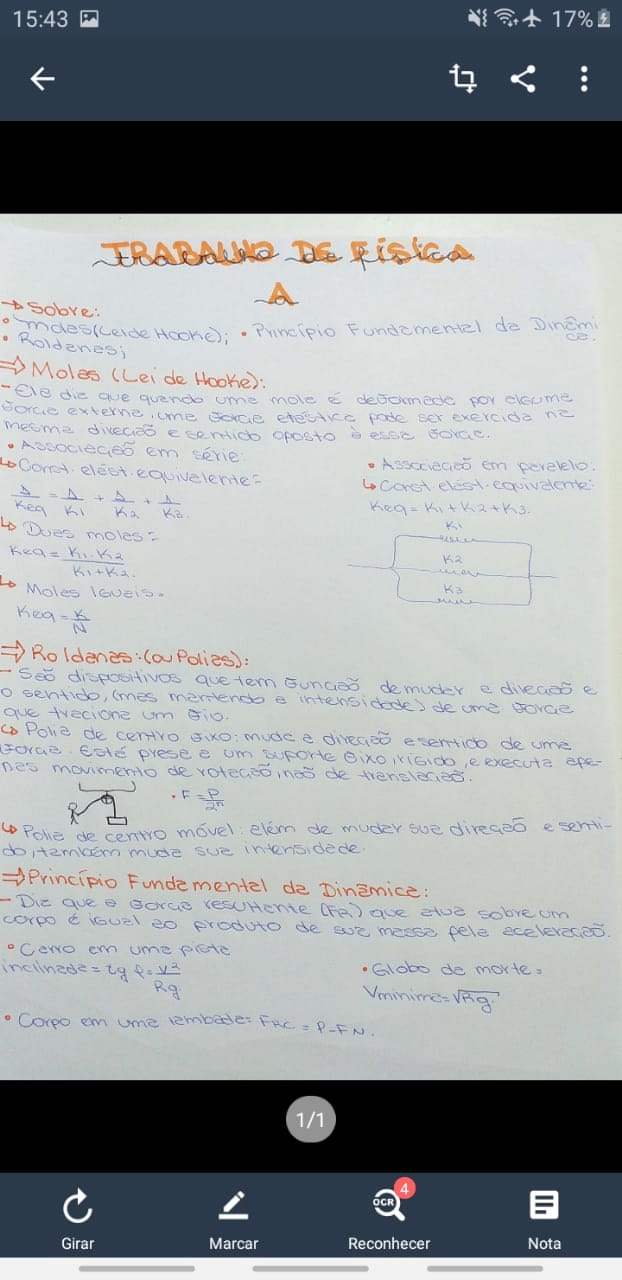 15:43
17%
TRABALHO DE FÍSICA
trabalho de física
A
→ Sobre:
• Moles (Lei de Hooke); • Princípio Fundamental da Dinâmi
ca.
• Roldanas;
⇒ Molas (Lei de Hooke):
- Ela diz que quando uma mola é deformada por alguma
força externa, uma força elástica pode ser exercida na
mesma direção e sentido oposto à essa força.
• Associação em série:
↳ Const. elást. equivalente=
1/Keq = 1/K1 + 1/K2 + 1/K3
↳ Duas molas=
Keq = K1.K2/K1+K2.
↳ Molas iguais=
Keq = K/N
• Associação em paralelo:
↳ Const elást. equivalente:
Keq = K1+K2+K3.
K1
K2
K3
⇒ Roldanas: (ou Polias):
- São dispositivos que tem função de mudar a direção e
o sentido, (mas mantendo a intensidade) de uma força
que traciona um fio.
↳ Polia de centro fixo: muda a direção e sentido de uma
força. Está presa a um suporte fixo, rígido, e executa ape-
nas movimento de rotação, não de translação.
• F = P/2ⁿ
↳ Polia de centro móvel: além de mudar sua direção e senti-
do, também muda sua intensidade.
⇒ Princípio Fundamental da Dinâmica:
- Diz que a força resultente (FR) que atua sobre um
corpo é igual ao produto de sua massa pela aceleração.
• Carro em uma pista
inclinada = tg θ = V²/Rg
• Globo da morte =
Vmínima = √Rg
• Corpo em uma lambada= FRC = P-FN.
1/1
OCR
4
Girar
Marcar
Reconhecer
Nota